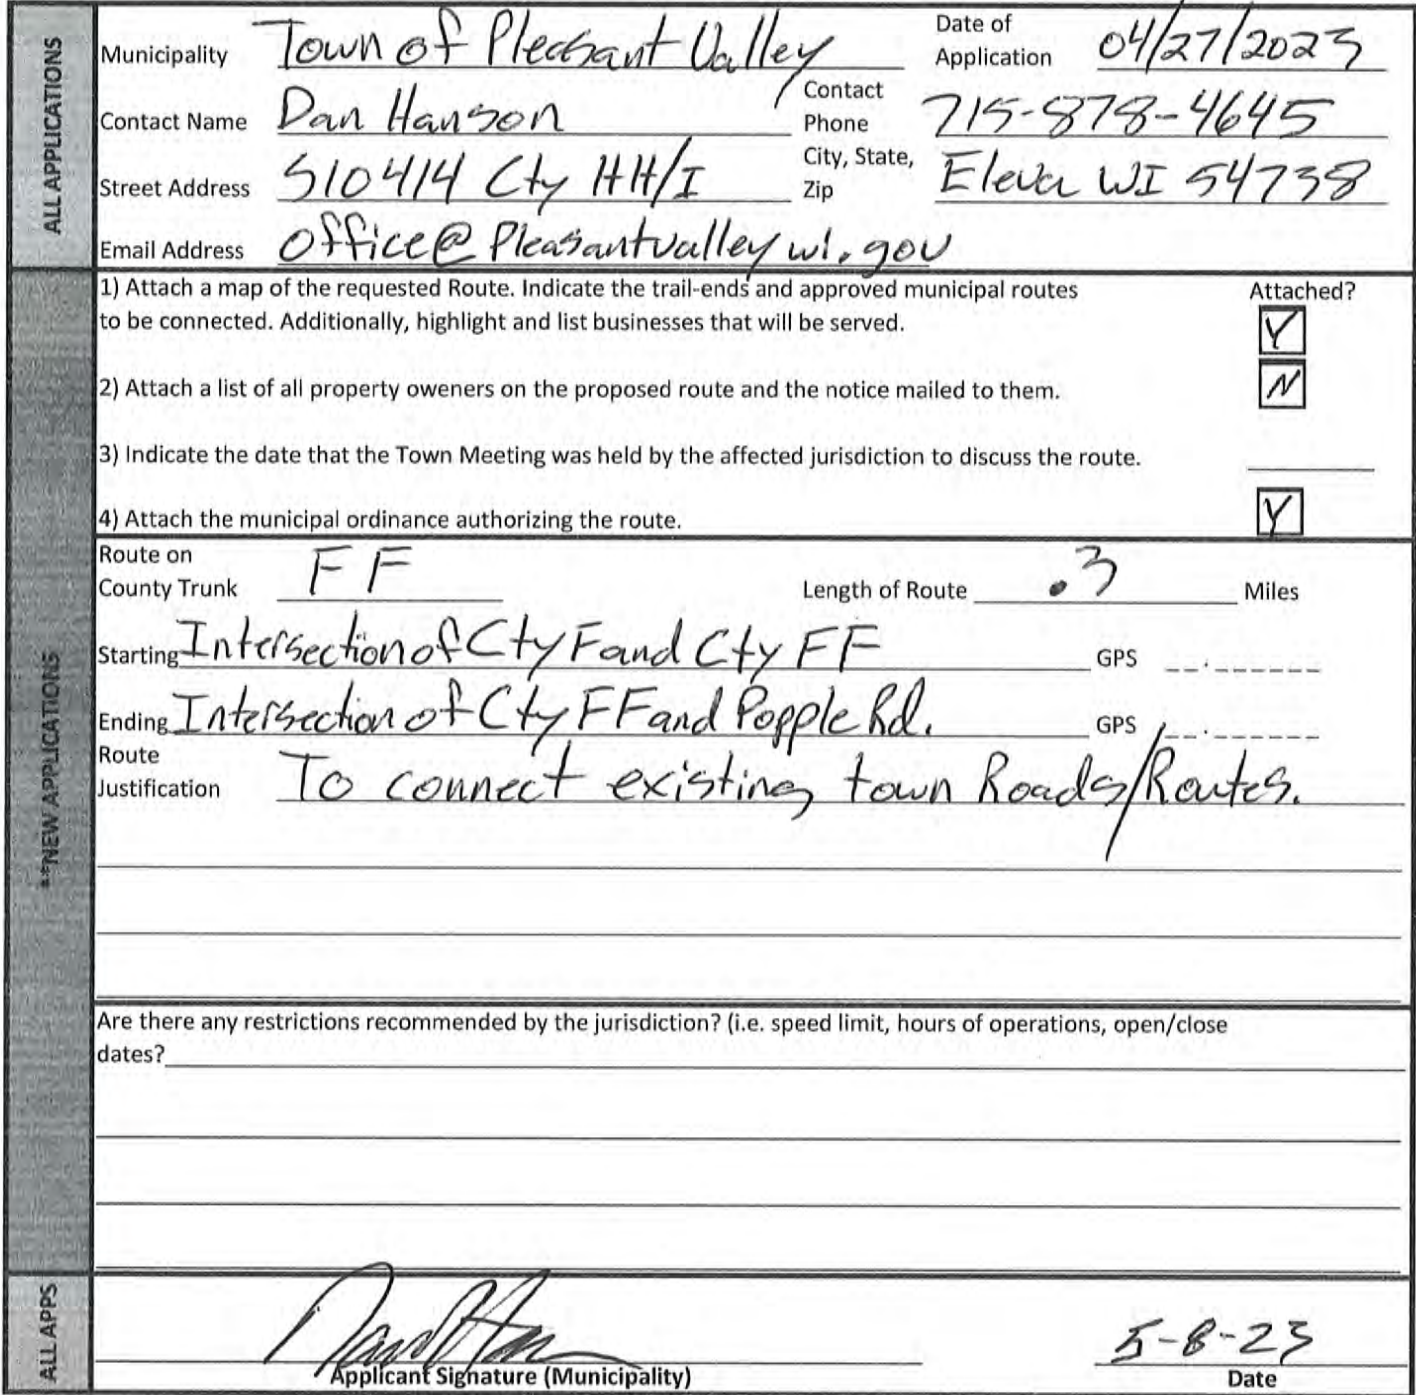 ALL APPLICATIONS
Municipality Town of Pleasant Valley Date of Application 04/27/2023
Contact Name Dan Hanson Contact Phone 715-878-4645
Street Address S10414 Cty HH/I City, State, Zip Eleva WI 54738
Email Address office@pleasantvalleywi.gov
**NEW APPLICATIONS
1) Attach a map of the requested Route. Indicate the trail-ends and approved municipal routes Attached?
to be connected. Additionally, highlight and list businesses that will be served. Y
2) Attach a list of all property oweners on the proposed route and the notice mailed to them. N
3) Indicate the date that the Town Meeting was held by the affected jurisdiction to discuss the route.
4) Attach the municipal ordinance authorizing the route. Y
Route on County Trunk FF Length of Route .3 Miles
Starting Intersection of Cty F and Cty FF GPS
Ending Intersection of Cty FF and Popple Rd. GPS
Route Justification To connect existing town Roads/Routes.
Are there any restrictions recommended by the jurisdiction? (i.e. speed limit, hours of operations, open/close
dates?
ALL APPS
5-8-23
Applicant Signature (Municipality) Date